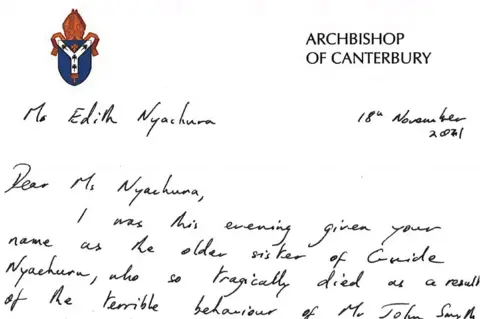 ARCHBISHOP
OF CANTERBURY
Ms Edith Nyachuru
18th November
2021
Dear Ms Nyachuru,
I was this evening given your
name as the older sister of Guide
Nyachuru, who so tragically died as a result
of the terrible behaviour of Mr John Smyth